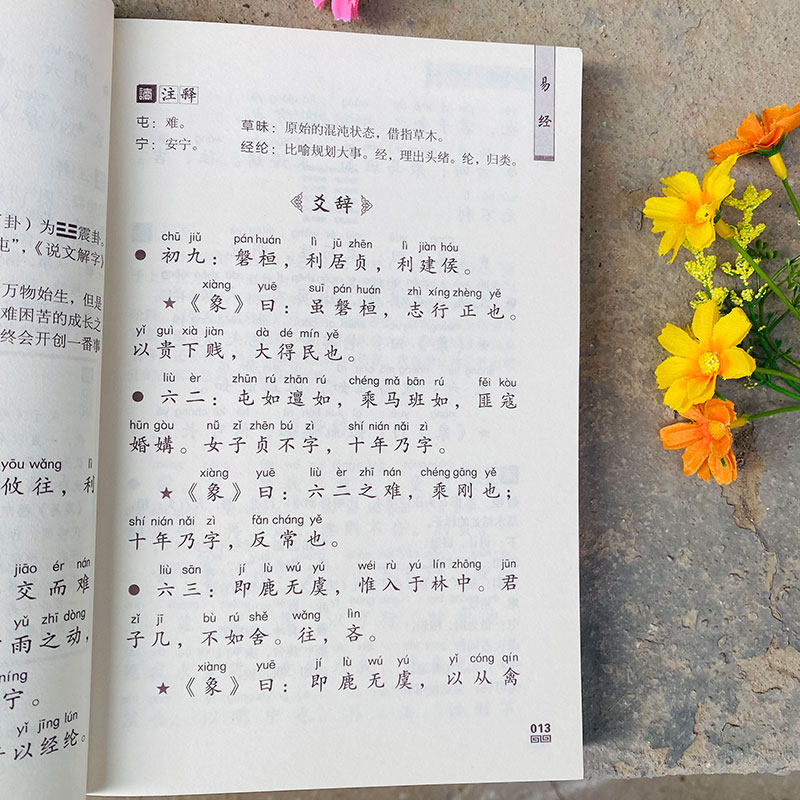 卦）为☳震卦。
屯”，《说文解字》
万物始生，但是
难困苦的成长之
终会开创一番事
yōu wǎng lì
攸往，利
jiāo ér nán
交而难
yǔ zhī dòng
雨之动，
níng
宁。
yǐ jīng lún
以经纶。
易经
注释
屯：难。 草昧：原始的混沌状态，借指草木。
宁：安宁。 经纶：比喻规划大事。经，理出头绪。纶，归类。
爻辞
chū jiǔ pán huán lì jū zhēn lì jiàn hóu
● 初九：磐桓，利居贞，利建侯。
xiàng yuē suī pán huán zhì xíng zhèng yě
★《象》曰：虽磐桓，志行正也。
yǐ guì xià jiàn dà dé mín yě
以贵下贱，大得民也。
liù èr zhūn rú zhān rú chéng mǎ bān rú fěi kòu
● 六二：屯如邅如，乘马班如，匪寇
hūn gòu nǚ zǐ zhēn bú zì shí nián nǎi zì
婚媾。女子贞不字，十年乃字。
xiàng yuē liù èr zhī nán chéng gāng yě
★《象》曰：六二之难，乘刚也；
shí nián nǎi zì fǎn cháng yě
十年乃字，反常也。
liù sān jí lù wú yú wéi rù yú lín zhōng jūn
● 六三：即鹿无虞，惟入于林中。君
zǐ jī bù rú shě wǎng lìn
子几，不如舍。往，吝。
xiàng yuē jí lù wú yú yǐ cóng qín
★《象》曰：即鹿无虞，以从禽
013